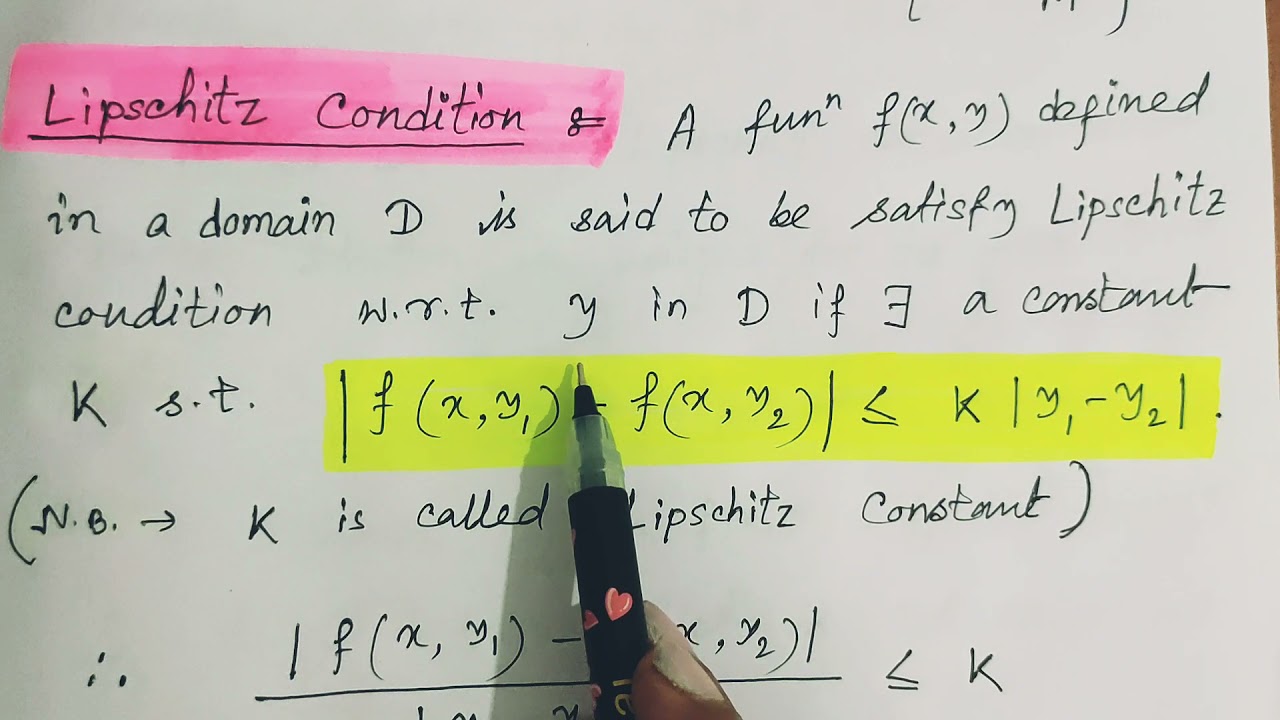 Lipschitz Condition :- A funⁿ f(x,y) defined
in a domain D is said to be satisfy Lipschitz
condition w.r.t. y in D if ∃ a constant
K s.t. |f(x,y₁) - f(x,y₂)| ≤ K |y₁-y₂|.
(N.B. → K is called Lipschitz Constant)
∴ |f(x, y₁) - x, y₂)| ≤ K